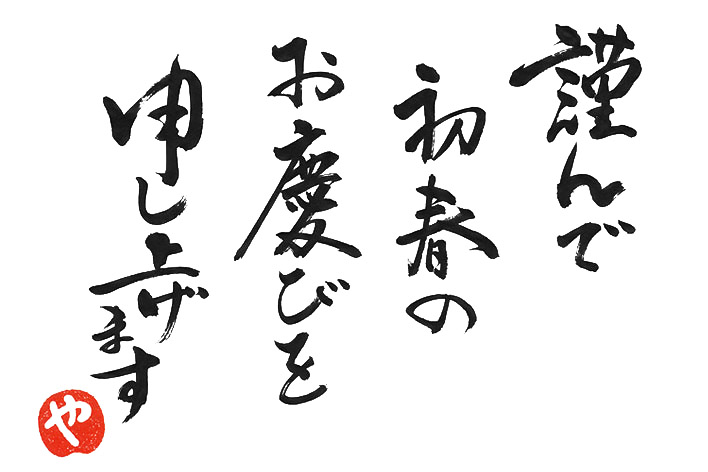 謹んで
初春の
お慶びを
申し上げます
や